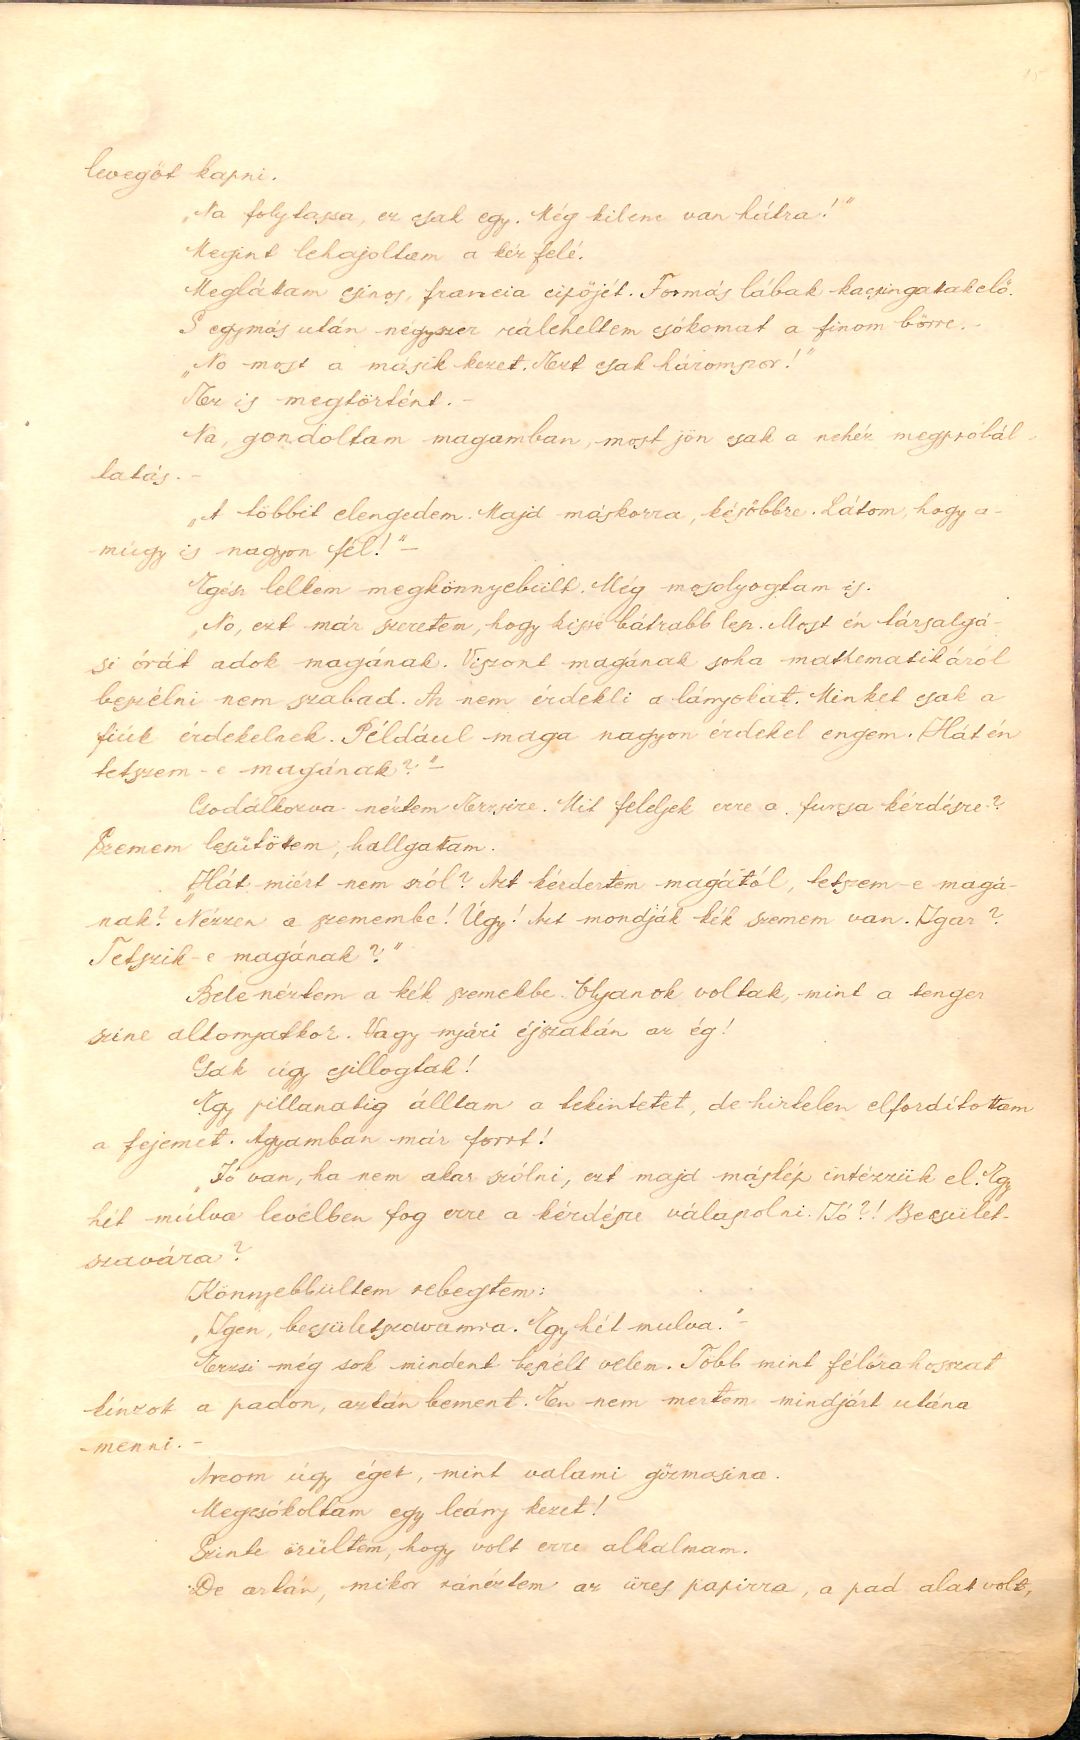 15
levegőt kapni.
„Na folytassa, ez csak egy. Még kilenc van hátra!"
Megint lehajoltam a kéz felé.
Meglátam csinos, francia cipőjét. Formás lábak kacsingatak elő.
S egymás után négyszer ráleheltem csókomat a finom bőrre. -
„No most a másik kezet. Ezt csak háromszor!"
Ez is megtörtént. -
Na, gondoltam magamban, most jön csak a nehéz megpróbál-
tatás. -
„A többit elengedem. Majd máskorra, későbbre. Látom, hogy a-
múgy is nagyon fél!" -
Egész lelkem megkönnyebült. Még mosolyogtam is.
„No, ezt már szeretem, hogy kissé bátrabb lesz. Most én társalgá-
si órát adok magának. Viszont magának soha mathematikáról
beszélni nem szabad. Az nem érdekli a lányokat. Minket csak a
fiúk érdekelnek. Például maga nagyon érdekel engem. Hát én
tetszem-e magának?" -
Csodálkozva néztem Erzsire. Mit feleljek erre a furcsa kérdésre?
Szemem lesütötem, hallgatam.
„Hát miért nem szól? Azt kérdeztem magától, tetszem-e magá-
nak? Nézzen a szemembe! Úgy! Azt mondják kék szemem van. Igaz?
Tetszik-e magának?"
Bele néztem a kék szemekbe. Olyanok voltak, mint a tenger
színe alkonyatkor. Vagy nyári éjszakán az ég!
Csak úgy csillogtak!
Egy pillanatig álltam a tekintetet, de hirtelen elfordítottam
a fejemet. Agyamban már forrt!
„Jó van, ha nem akar szólni, ezt majd máskép intézzük el. Egy
hét múlva levélben fog erre a kérdésre válaszolni. Jó?! Becsület-
szavára?
Könnyebbülten rebegtem:
„Igen, becsületszavamra. Egy hét mulva." -
Erzsi még sok mindent beszélt velem. Több mint félóra hosszat
kínzot a padon, aztán bement. Én nem mertem mindjárt utána
menni. -
Arcom úgy éget, mint valami gőzmasina.
Megcsókoltam egy leány kezet!
Szinte örültem, hogy volt erre alkalmam.
De aztán, mikor ránéztem az üres papirra, a pad alat volt,